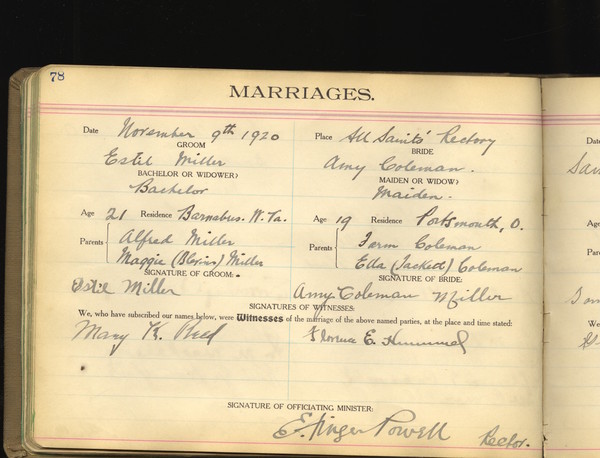 78
MARRIAGES.
Date November 9th 1920 Place All Saints' Rectory
GROOM BRIDE
Estil Miller Amy Coleman.
BACHELOR OR WIDOWER? MAIDEN OR WIDOW?
Bachelor Maiden.
Age 21 Residence Barnabus. W. Va. Age 19 Residence Portsmouth, O.
Parents Alfred Miller Parents Coleman
Maggie Miller Ella Coleman
SIGNATURE OF GROOM: SIGNATURE OF BRIDE:
Estil Miller Amy Coleman Miller
SIGNATURES OF WITNESSES:
We, who have subscribed our names below, were Witnesses of the marriage of the above named parties, at the place and time stated:
Mary K. Florence E.
SIGNATURE OF OFFICIATING MINISTER:
E. Ainger Powell Rector.
Date
Age
Parents
We